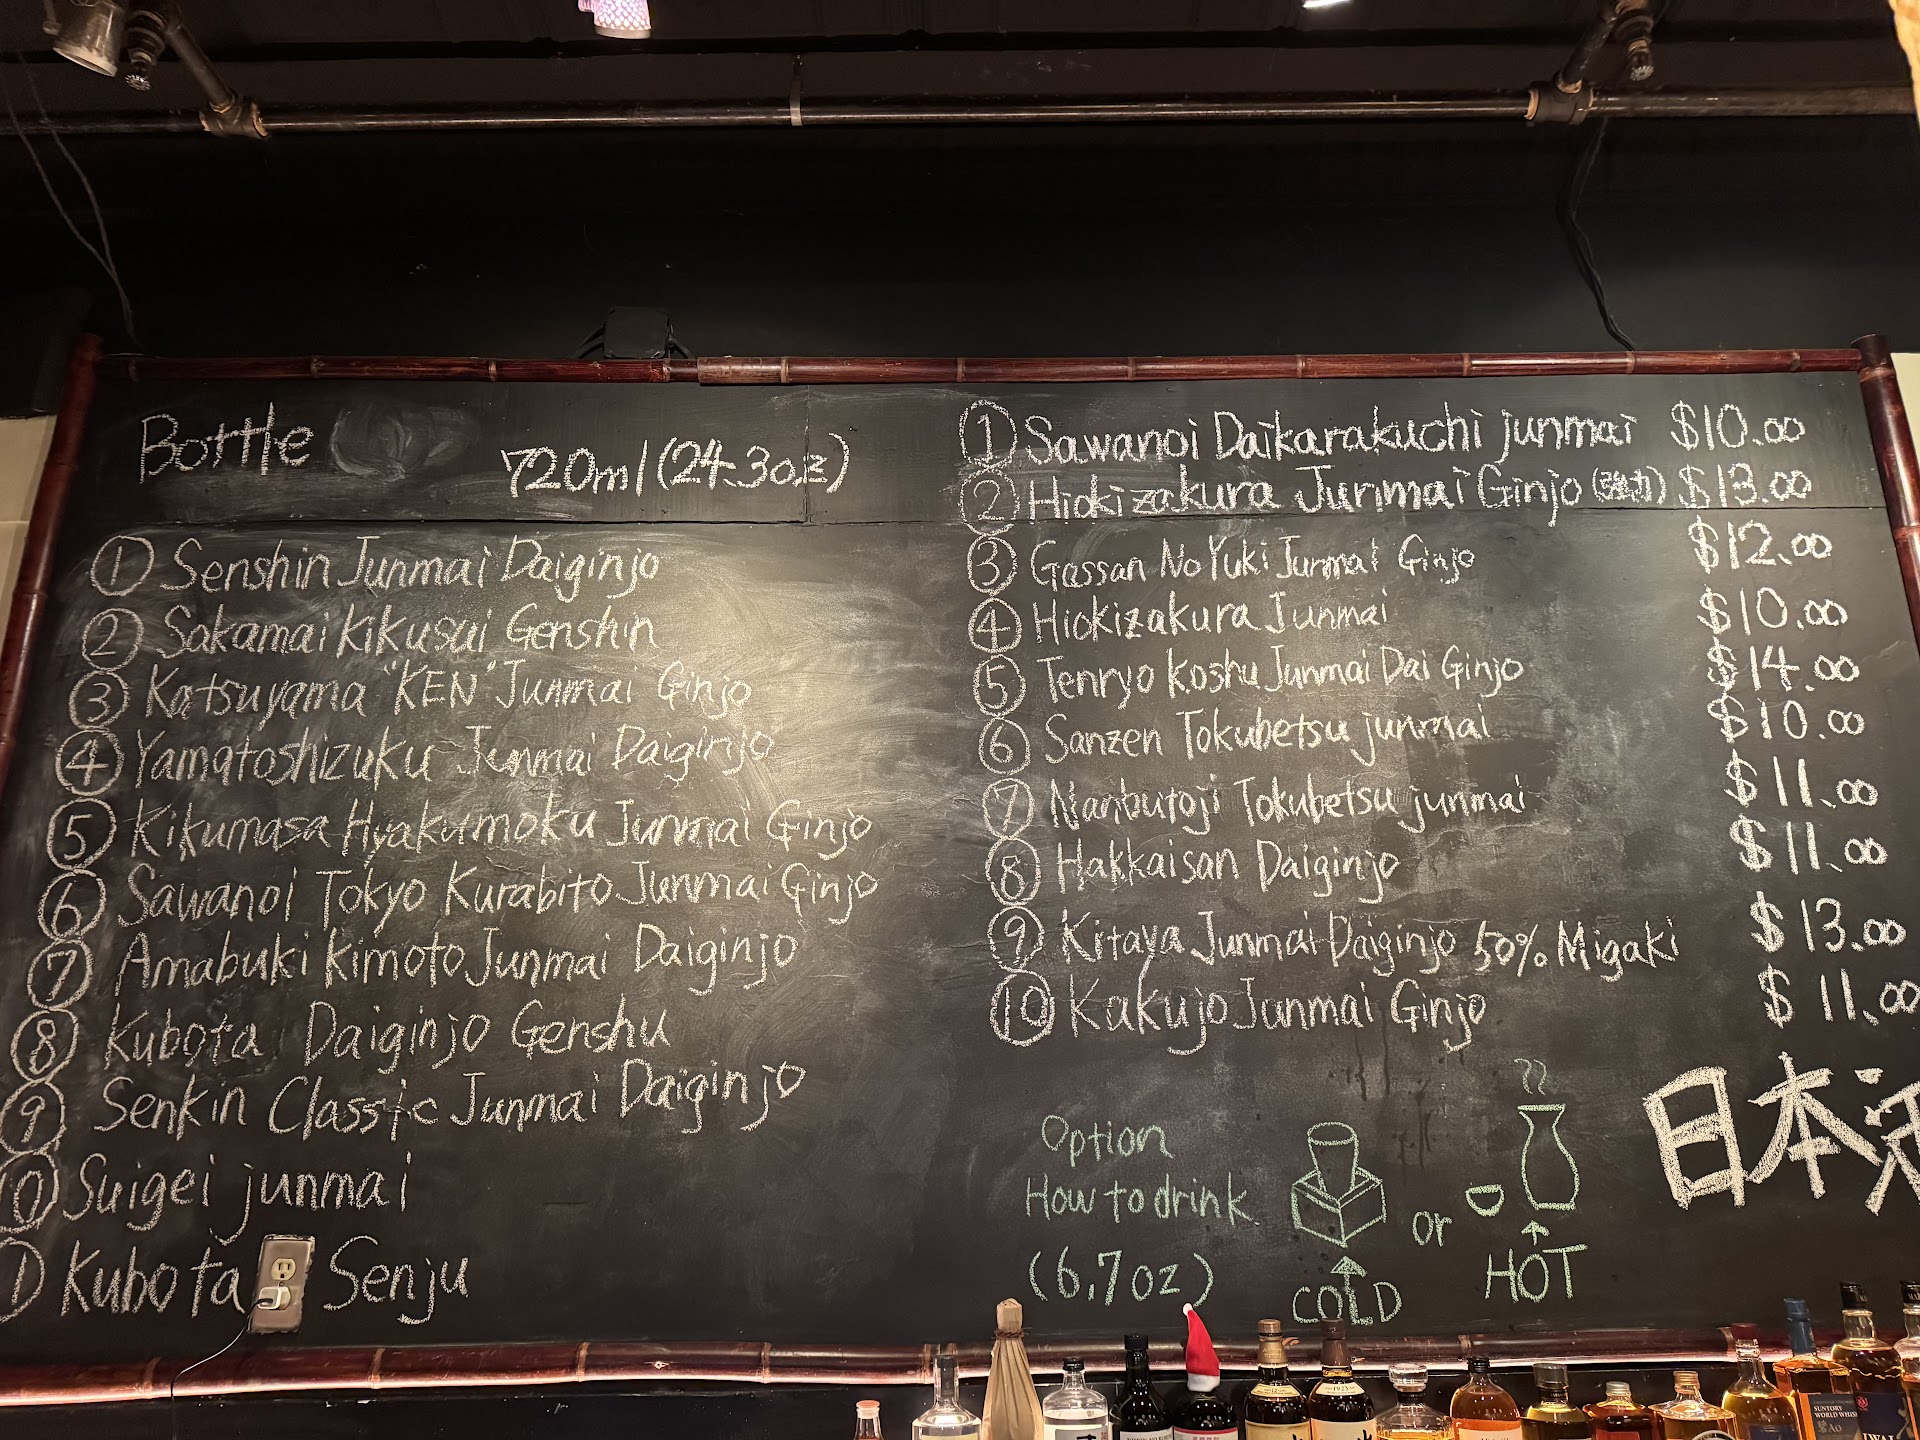 Bottle
720ml (24.3o.z)
① Senshin Junmai Daiginjo
② Sakamai Kikusui Genshin
③ Katsuyama "KEN" Junmai Ginjo
④ Yamatoshizuku Junmai Daiginjo
⑤ Kikumasa Hyakumoku Junmai Ginjo
⑥ Sawanoi Tokyo Kurabito Junmai Ginjo
⑦ Amabuki Kimoto Junmai Daiginjo
⑧ Kubota Daiginjo Genshu
⑨ Senkin Classic Junmai Daiginjo
⑩ Suigei junmai
Kubota Senju
① Sawanoi Daikarakuchi junmai $10.00
② Hiokizakura Junmai Ginjo (強力) $13.00
③ Gassan No Yuki Junmai Ginjo $12.00
④ Hiokizakura Junmai $10.00
⑤ Tenryo Koshu Junmai Dai Ginjo $14.00
⑥ Sanzen Tokubetsu junmai $10.00
⑦ Nanbutoji Tokubetsu junmai $11.00
⑧ Hakkaisan Daiginjo $11.00
⑨ Kitaya Junmai Daiginjo 50% Migaki $13.00
⑩ Kakujo Junmai Ginjo $11.00
日本酒
Option
How to drink
(6.7oz)
COLD
or
HOT
SUNTORY
WORLD WHISKY